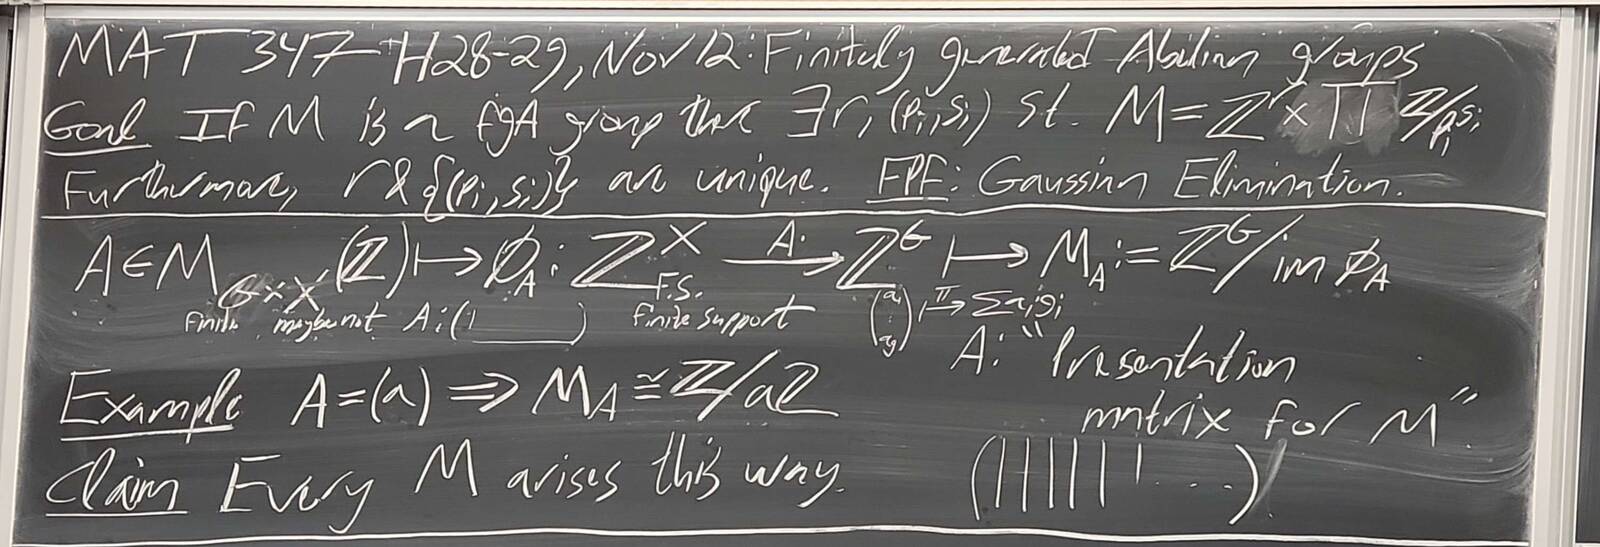 MAT 347 H28-29, Nov 12: Finitely generated Abelian groups
Goal If M is a fgA group then ∃ r, (pᵢ, sᵢ) st. M = ℤʳ × ∏ ℤ/pᵢ^sᵢ
Furthermore, r & {(pᵢ, sᵢ)} are unique. FPF: Gaussian Elimination.
A ∈ M_{G×X}(ℤ) ↦ ϕ_A : ℤ^X_{F.S.} —A·→ ℤ^G ↦ M_A := ℤ^G/im ϕ_A
finite maybe not A: ( | ) finite support (a₁ ⋮ a_g) ↦^π Σ aᵢgᵢ
A: "Presentation
matrix for M".
Example A = (a) ⇒ M_A ≅ ℤ/aℤ
Claim Every M arises this way. ( | | | | | | ... )